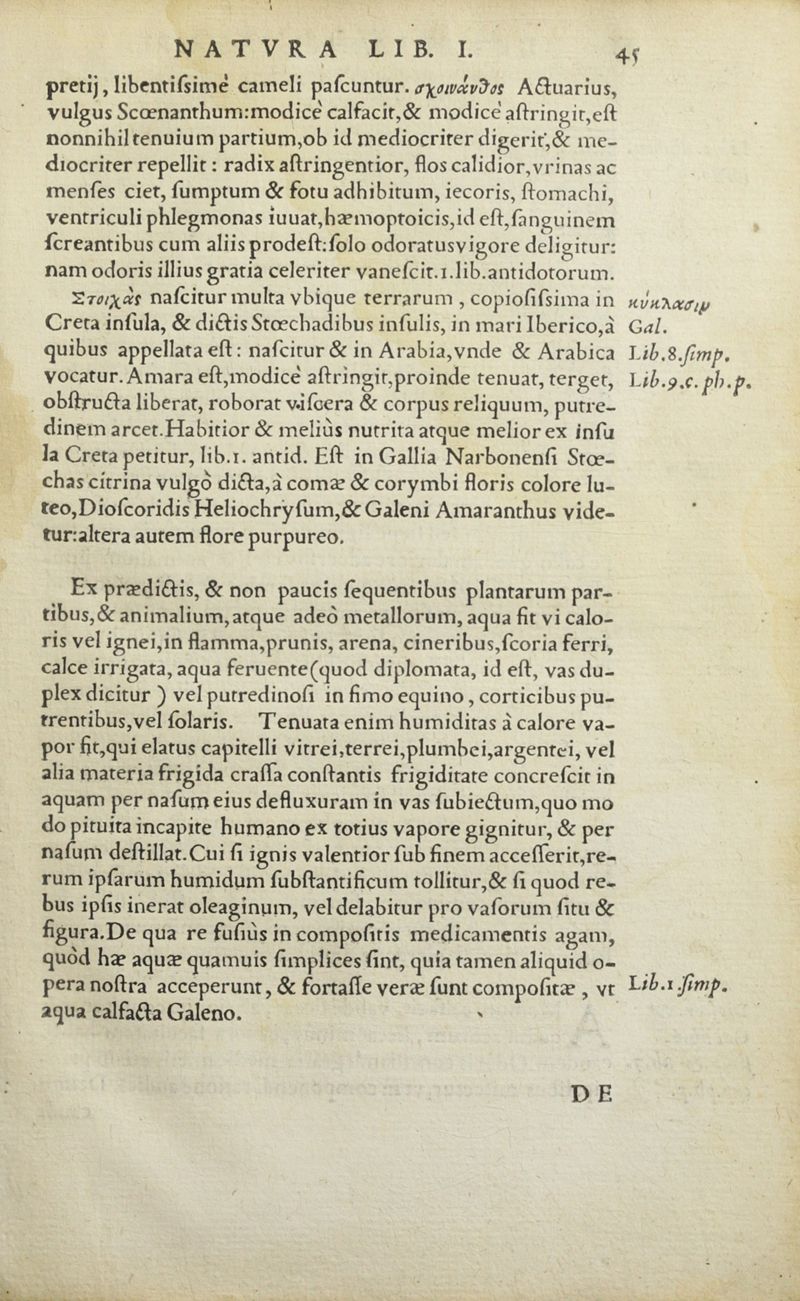 NATVRA LIB. I. 45
pretij, libentiſsimè cameli paſcuntur. σχοινάνθος Actuarius,
vulgus Scœnanthum:modicè calfacit,& modicè aſtringit,eſt
nonnihil tenuium partium,ob id mediocriter digerit,& me-
diocriter repellit : radix aſtringentior, flos calidior,vrinas ac
menſes ciet, ſumptum & fotu adhibitum, iecoris, ſtomachi,
ventriculi phlegmonas iuuat,hæmoptoicis,id eſt,ſanguinem
ſcreantibus cum aliis prodeſt:ſolo odoratus vigore deligitur:
nam odoris illius gratia celeriter vaneſcit.1.lib.antidotorum.
Στοιχὰς naſcitur multa vbique terrarum , copioſiſsima in
Creta inſula, & dictis Stœchadibus inſulis, in mari Iberico,à Gal.
quibus appellata eſt : naſcitur & in Arabia,vnde & Arabica Lib.8.ſimp.
vocatur. Amara eſt,modicè aſtringit,proinde tenuat, terget, Lib.9.c.ph.p.
obſtructa liberat, roborat viſcera & corpus reliquum, putre-
dinem arcet.Habitior & meliùs nutrita atque melior ex inſu
la Creta petitur, lib.1. antid. Eſt in Gallia Narbonenſi Stœ-
chas citrina vulgò dicta,à comæ & corymbi floris colore lu-
teo,Dioſcoridis Heliochryſum,& Galeni Amaranthus vide-
tur:altera autem flore purpureo.
Ex prædictis, & non paucis ſequentibus plantarum par-
tibus,& animalium,atque adeò metallorum, aqua fit vi calo-
ris vel ignei,in flamma,prunis, arena, cineribus,ſcoria ferri,
calce irrigata, aqua feruente(quod diplomata, id eſt, vas du-
plex dicitur ) vel putredinoſi in fimo equino , corticibus pu-
trentibus,vel ſolaris. Tenuata enim humiditas à calore va-
por fit,qui elatus capitelli vitrei,terrei,plumbei,argentei, vel
alia materia frigida craſſa conſtantis frigiditate concreſcit in
aquam per naſum eius defluxuram in vas ſubiectum,quo mo
do pituita in capite humano ex totius vapore gignitur, & per
naſum deſtillat.Cui ſi ignis valentior ſub finem acceſſerit,re-
rum ipſarum humidum ſubſtantificum tollitur,& ſi quod re-
bus ipſis inerat oleaginum, vel delabitur pro vaſorum ſitu &
figura.De qua re fuſiùs in compoſitis medicamentis agam,
quòd hæ aquæ quamuis ſimplices ſint, quia tamen aliquid o-
pera noſtra acceperunt, & fortaſſe veræ ſunt compoſitæ , vt Lib.1 ſimp.
aqua calfacta Galeno.
DE